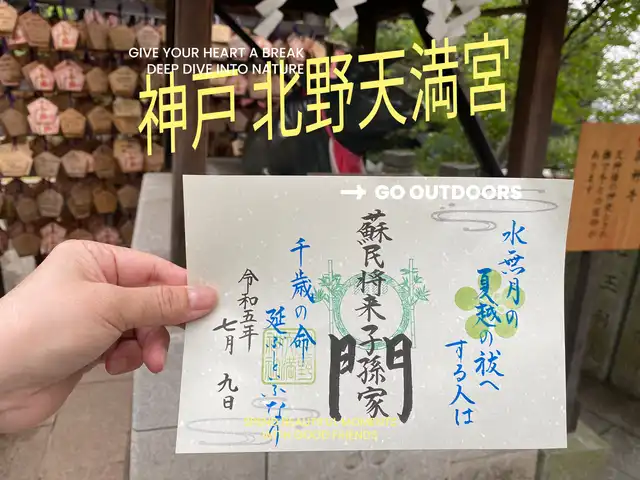 GIVE YOUR HEART A BREAK
DEEP DIVE INTO NATURE
神戸 北野天満宮
→ GO OUTDOORS
水無月の
夏越の祓へ
する人は
蘇民将来子孫家
門
千歳の命
延ぶといふなり
令和五年
七月 九日
WITH GOOD FRIENDS